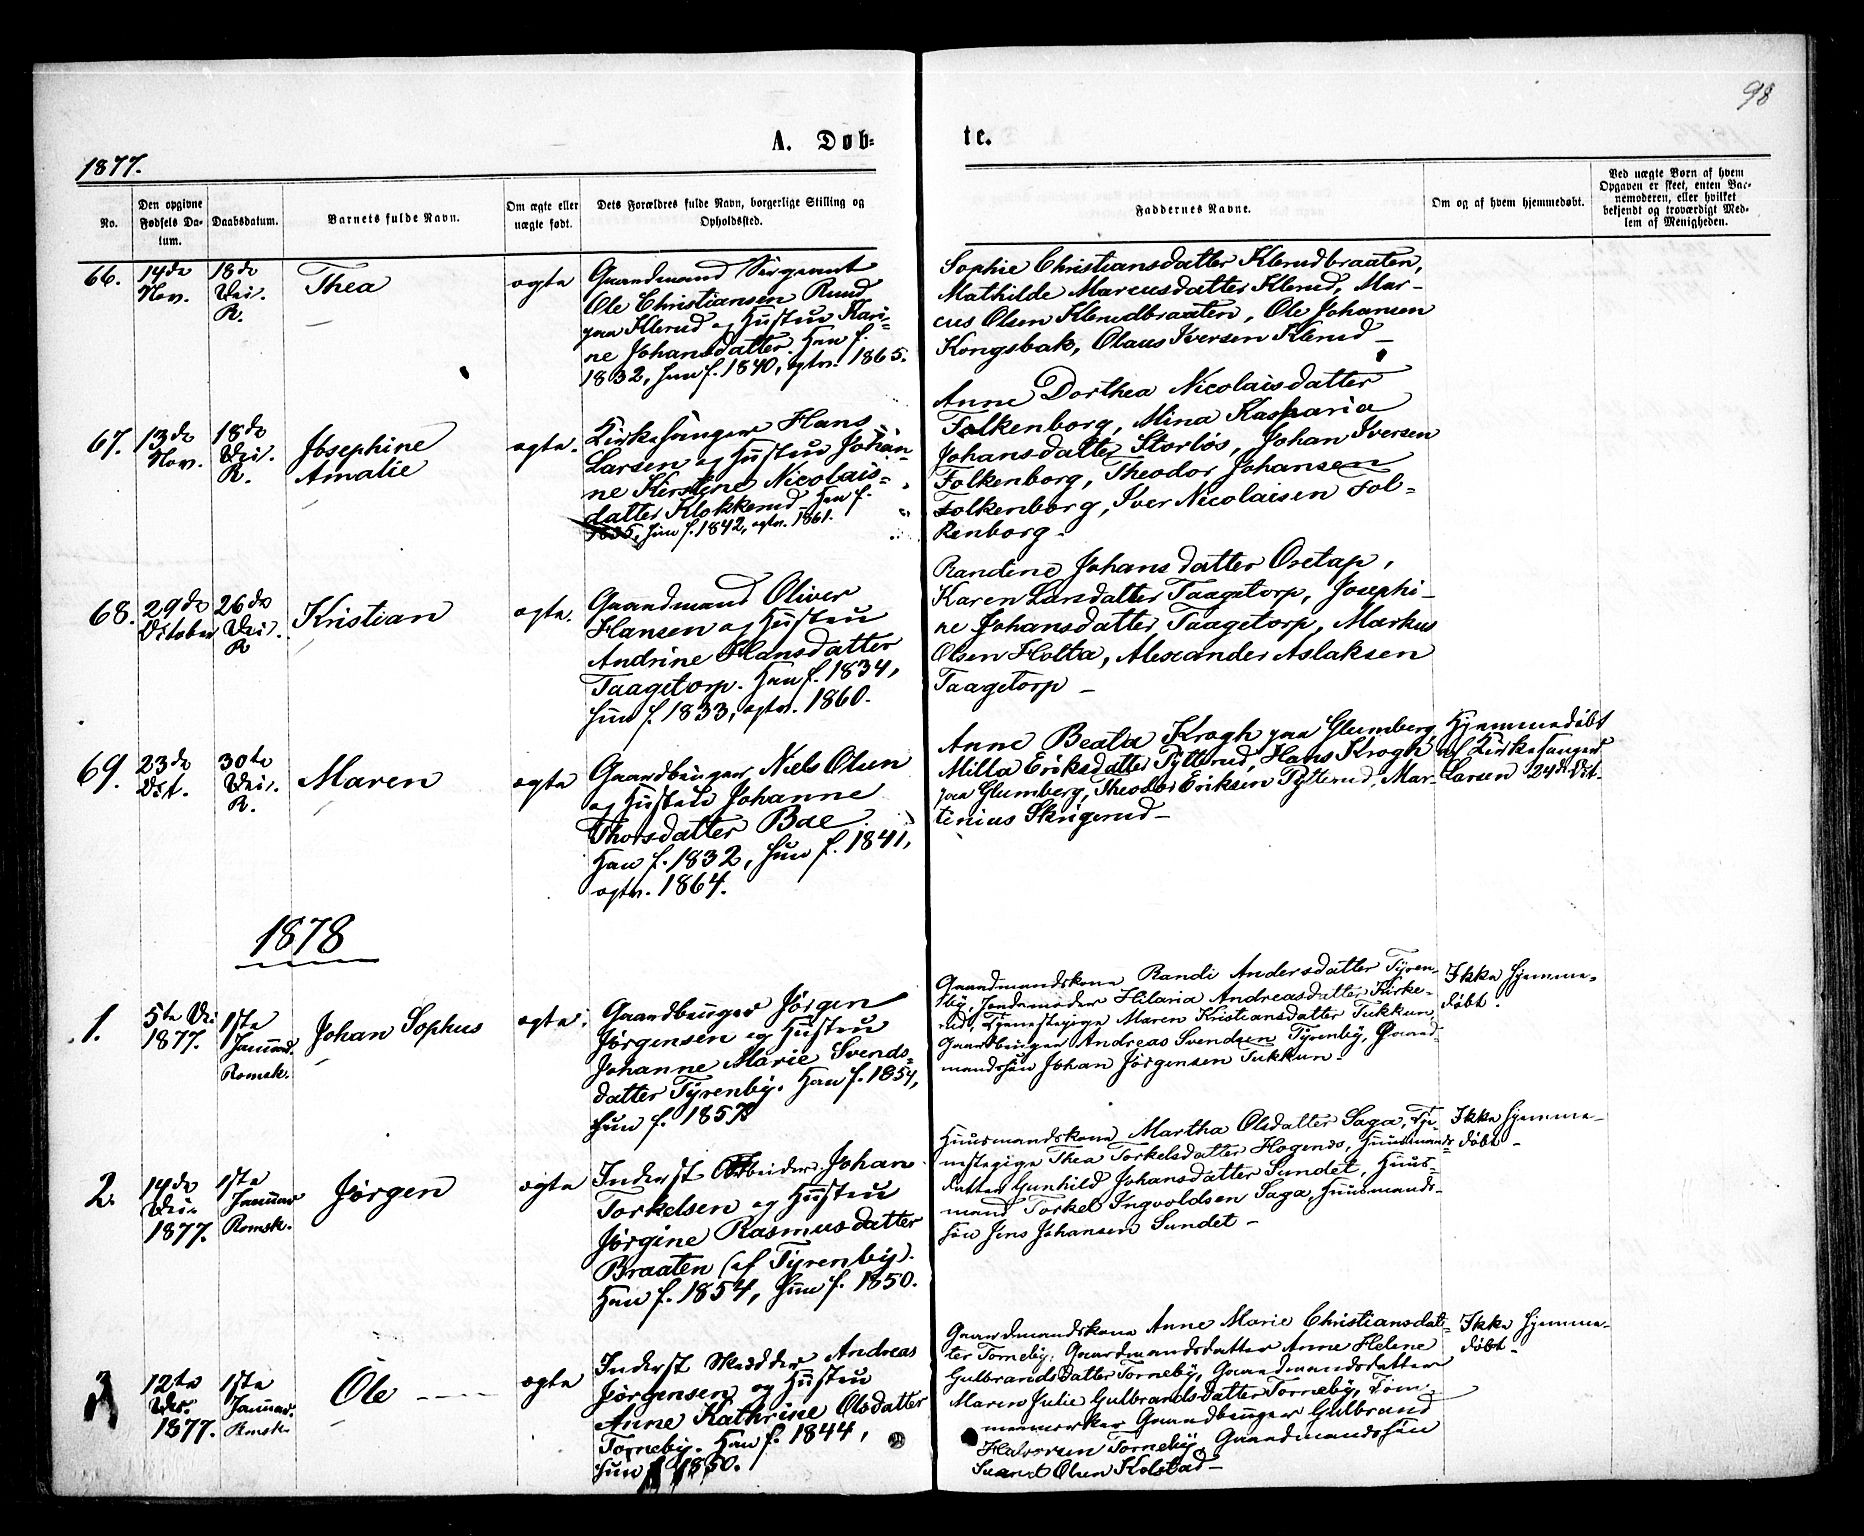 98
A. Døb-
te.
1877.
No.
Den opgivne
Fødsels Da-
tum.
Daabsdatum.
Barnets fulde Navn.
Om ægte eller
uægte født.
Dets Forældres fulde Navn, borgerlige Stilling og
Opholdssted.
Faddernes Navne.
Om og af hvem hjemmedøbt.
Ved uægte Børn af hvem
Opgaven er skeet, enten Bar-
nemoderen, eller hvilket
bekjendt og troværdigt Med-
lem af Menigheden.
66.
14de
Nov.
18de
Dec.
R.
Thea
ægte
Gaardmand Sergeant
Ole Christiansen Ruud
paa Klerud og Hustru Kari-
ne Johansdatter. Han f.
1832, hun f. 1840, ægtev. 1865.
Sophie Christiansdatter Klerudbraaten,
Mathilde Marcusdatter Klerud, Mar-
cus Olsen Klerudbraaten, Ole Johansen
Kongsbak, Olaus Iversen Klerud -
67.
13de
Nov.
18de
Dec.
R.
Josephine
Amalie
ægte.
Kirkesanger Hans
Larsen og Hustru Johan-
ne Kirstine Nicolais-
datter Klokkerud. Han f.
1835, hun f. 1842, ægtev. 1861.
Anne Dorthea Nicolaisdatter
Folkenborg, Mina Kasparia
Johansdatter Storløs, Johan Iversen
Folkenborg, Theodor Johansen
Folkenborg, Iver Nicolaisen Fol-
kenborg -
68.
29de
October
26de
Dec.
R
Kristian
ægte.
Gaardmand Oliver
Hansen og Hustru
Andrine Hansdatter
Taagetorp. Han f. 1834,
hun f. 1833, ægtev. 1860.
Randine Johansdatter Oretap,
Karen Larsdatter Taagetorp, Josephi-
ne Johansdatter Taagetorp, Markus
Olsen Holta, Alexander Aslaksen
Taagetorp -
69.
23de
Oct.
30te
Dec.
R.
Maren
ægte
Gaardbruger Niels Olsen
og Hustru Johanne
Thorsdatter Bae
Han f. 1832, hun f. 1841,
ægtev. 1864.
Anne Beata Krogh paa Glumberg,
Milla Eriksdatter Pytterud, Hans Krogh
paa Glumberg, Theodor Eriksen Pytterud, Mar-
tinius Skrigerud -
Hjemmedøbt
af Kirkesanger
Larsen 24de Oct.
1878
1.
5te Dec
1877.
1ste
Januar.
Romsk.
Johan Sophus
ægte.
Gaardbruger Jørgen
Jørgensen og Hustru
Johanne Marie Svends-
datter Tyrenby. Han f. 1854,
hun f. 1857
Gaardmandskone Randi Andersdatter Tyren-
by, Jordemoder Hilaria Andreasdatter Kirke-
rud, Tjenestepige Maren Kristiansdatter Tukkun,
Gaardbruger Andreas Svendsen Tyrenby, Gaard-
mandssøn Johan Jørgensen Tukkun -
Ikke hjemme-
døbt.
2.
14de
Dec.
1877.
1ste
Januar
Romsk.
Jørgen
ægte
Inderst Arbeider Johan
Torkelsen og Hustru
Jørgine Rasmusdatter
Braaten (af Tyrenby).
Han f. 1854, hun f. 1850.
Huusmandskone Martha Olsdatter Saga, Tje-
nestepige Thea Torkelsdatter Hogends, Huusmands-
datter Gunhild Johansdatter Sundet, Huus-
mand Torkel Ingvoldsen Saga, Huusmands-
søn Jens Johansen Sundet -
Ikke hjemme-
døbt -
3
12te
Dec.
1877.
1ste
Januar.
Romsk.
Ole
ægte
Inderst Skrædder Andreas
Jørgensen og Hustru
Anne Kathrine Olsdatter
Torneby. Han f. 1844,
hun f. 1850.
Gaardmandskone Anne Marie Christiansdat-
ter Torneby, Gaardmandsdatter Anne Helene
Gulbrandsdatter Torneby, Gaardmandsdatter
Maren Julie Gulbrandsdatter Torneby, Tøm-
mermerker Gaardbruger Gulbrand
Halvorsen Torneby, Gaardmandssøn
Svend Olsen Kolstad -
Ikke hjemme-
døbt -